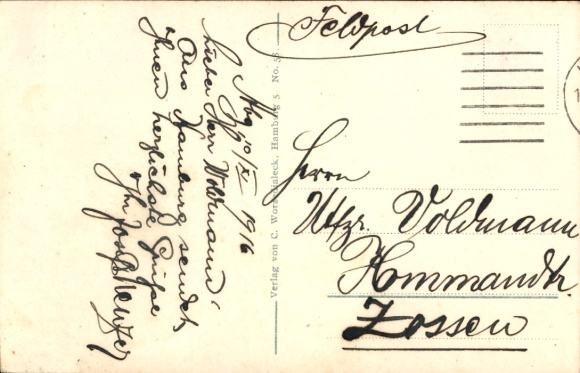 Feldpost
Hbg 10/XI 1916
Lieber Herr Woldmann!
Aus Hamburg sendet
Ihnen herzlichste Grüße
Ihr
Verlag von C. Worzedialeck, Hamburg 5 No. 58
Herrn
Utfzr. Voldmann
Kommandtr
Zossen